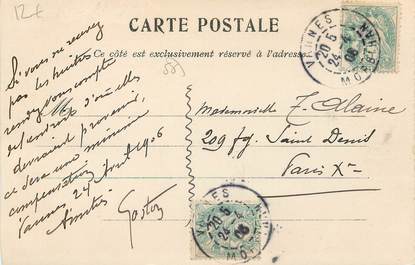 12f
CARTE POSTALE
Ce côté est exclusivement réservé à l'adresse
Si vous ne recevez
pas les huitres
rendez vous compte
et d'où elles
devraient provenir,
ce sera une minime
compensation
Vannes 24 Avril 1906
Amitiés
Gaston
M
Mademoiselle T. Alaine
209 fg. Saint Denis
Paris Xe
VANNES
20 5
24-4
06
MORBIHAN
VANNES
20 5
24-4
06
MORBIHAN